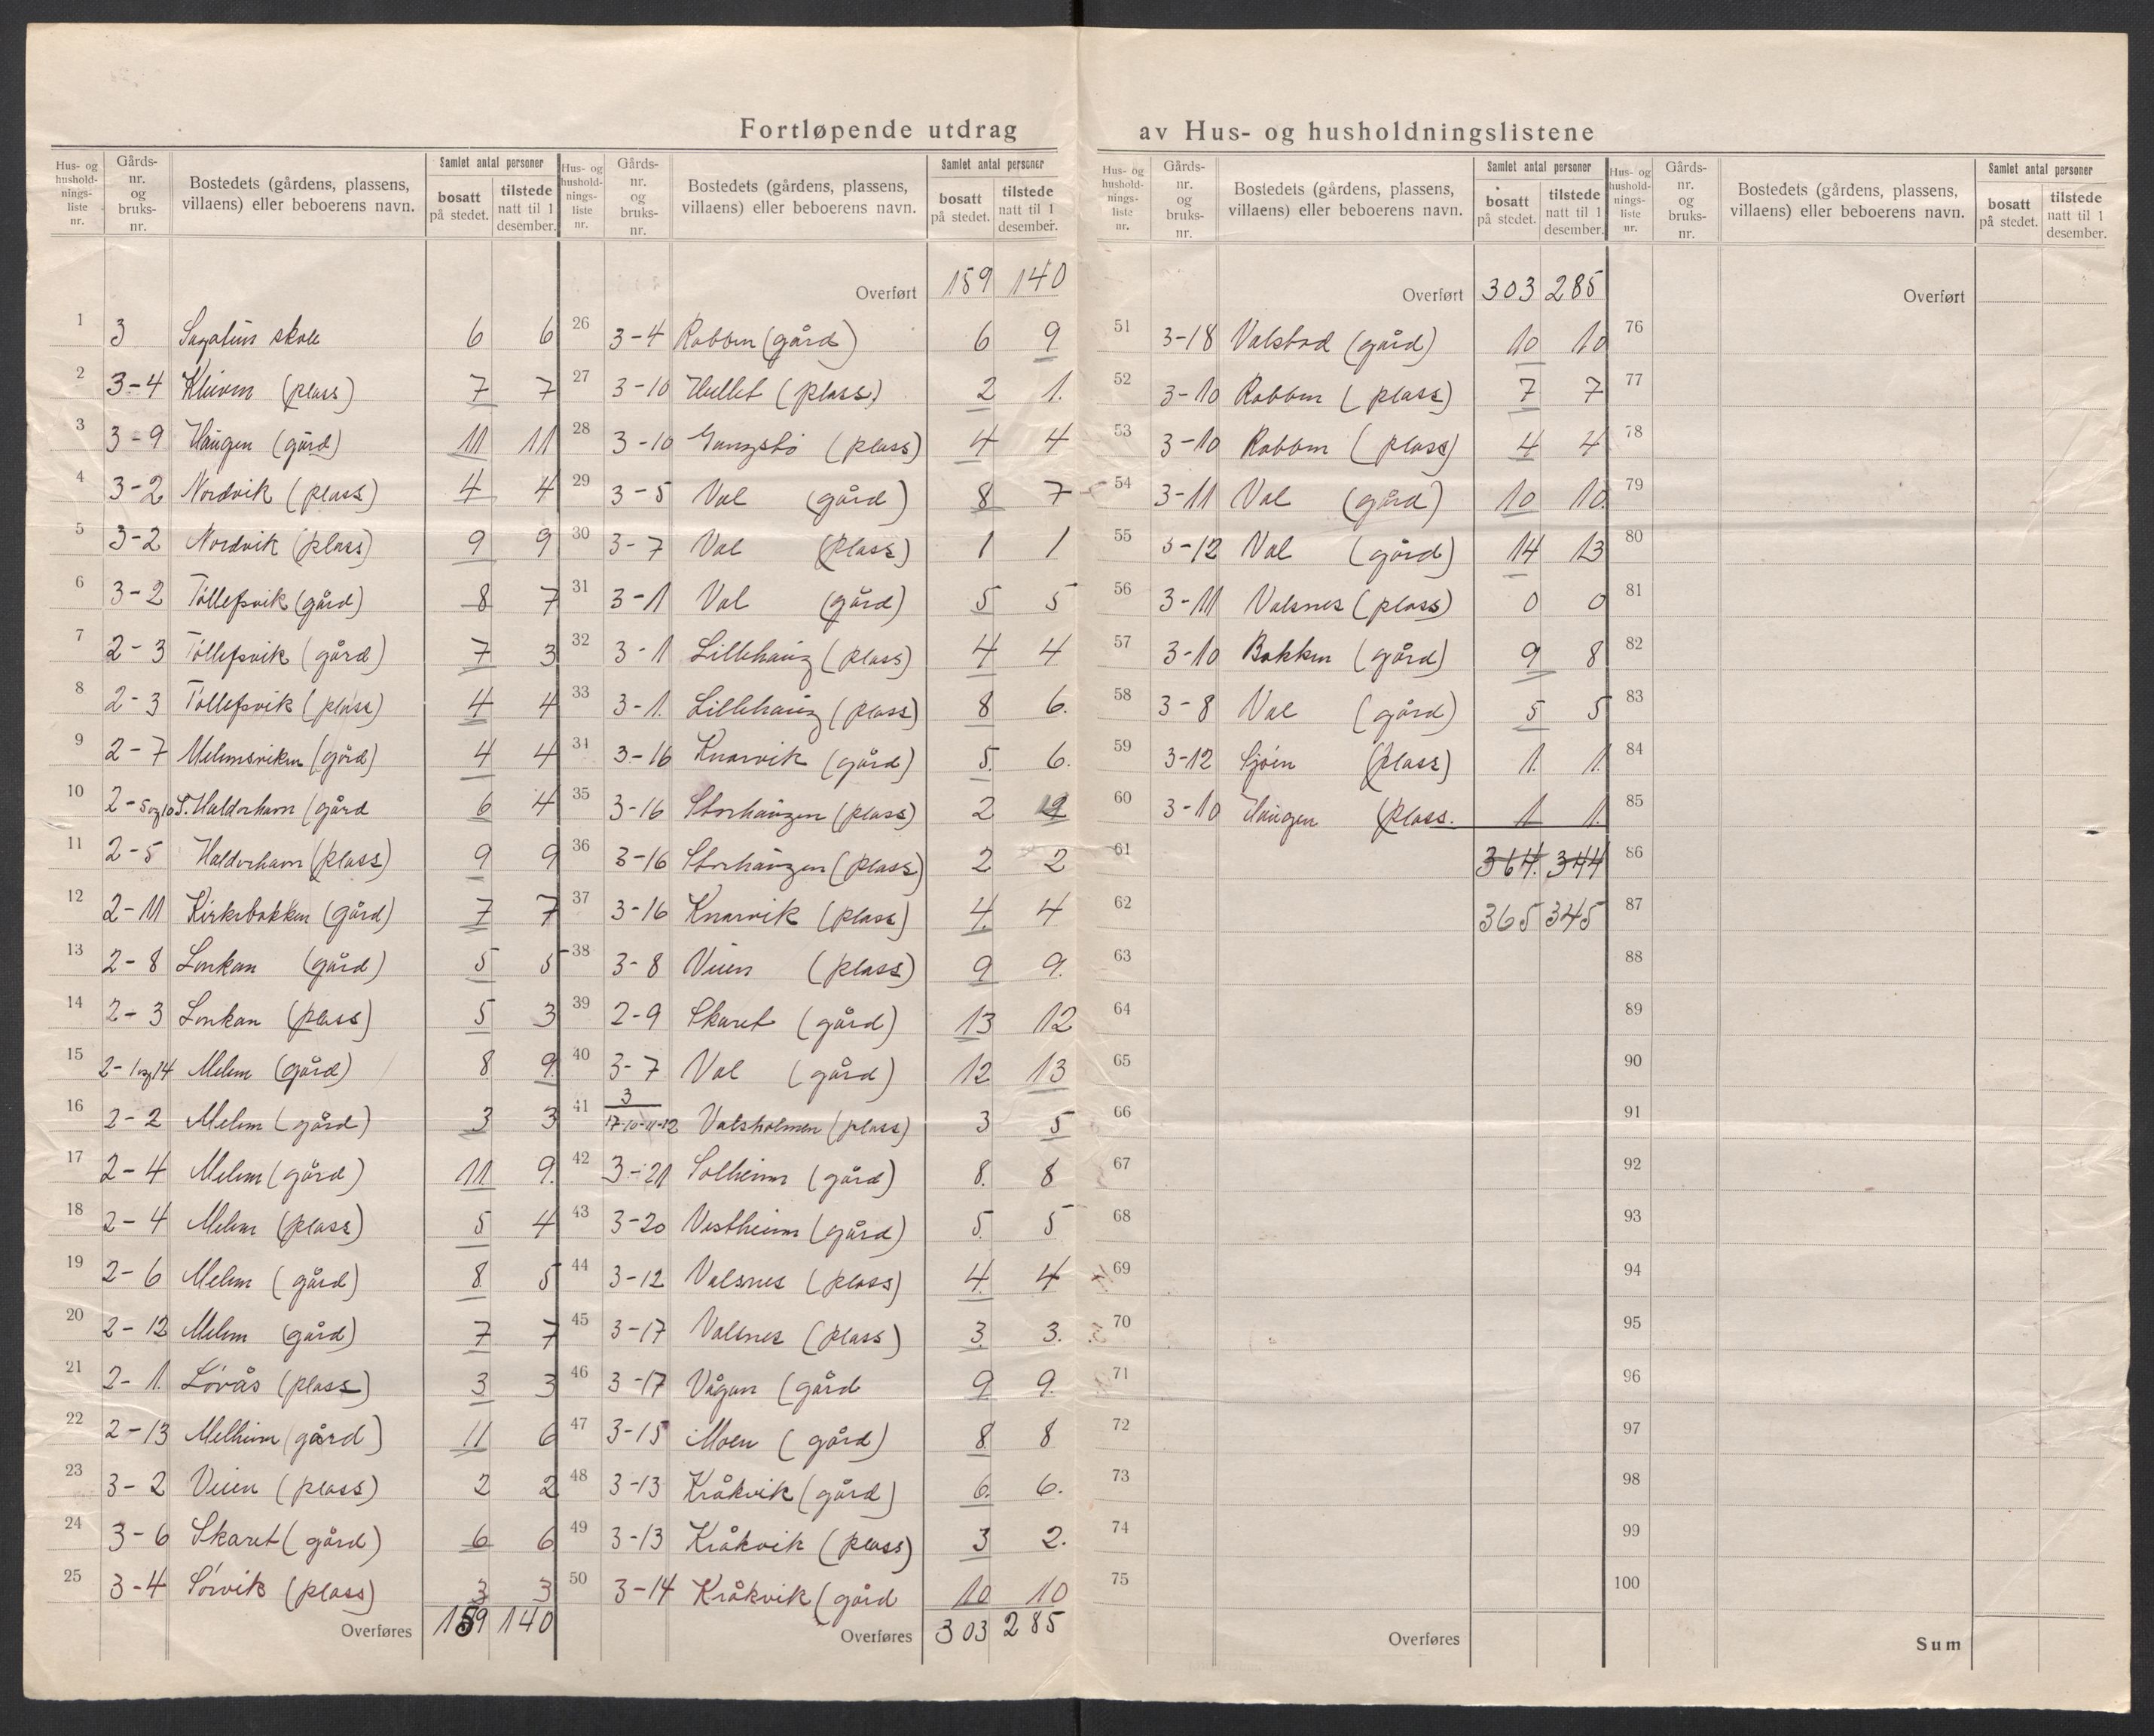 Fortløpende utdrag av Hus- og husholdningslistene
Hus- og husholdningsliste nr. | Gårdsnr. og bruksnr. | Bostedets (gårdens, plassens, villaens) eller beboerens navn. | Samlet antal personer: bosatt på stedet. | tilstede natt til 1 desember.
1 3 Sagatun skole 6 6
2 3-4 Kleiven (plass) 7 7
3 3-9 Haugen (gård) 11 11
4 3-2 Nordvik (plass) 4 4
5 3-2 Nordvik (plass) 9 9
6 3-2 Tøllefsvik (gård) 8 7
7 2-3 Tøllefsvik (gård) 7 3
8 2-3 Tøllefsvik (plass) 4 4
9 2-7 Melemsviken (gård) 4 4
10 2-5og10 S. Halderhavn (gård 6 4
11 2-5 Halderhavn (plass) 9 9
12 2-11 Kirkebakken (gård) 7 7
13 2-8 Lonkan (gård) 5 5
14 2-3 Lonkan (plass) 5 3
15 2-1og14 Melem (gård) 8 9
16 2-2 Melem (gård) 3 3
17 2-4 Melem (gård) 11 9.
18 2-4 Melem (plass) 5 4
19 2-6 Melem (gård) 8 5
20 2-12 Melem (gård) 7 7
21 2-1. Løvås (plass) 3 3
22 2-13 Melheim (gård) 11 6
23 3-2 Veien (plass) 2 2
24 3-6 Skaret (gård) 6 6
25 3-4 Sørvik (plass) 3 3
Overføres 159 140
Hus- og husholdningsliste nr. | Gårdsnr. og bruksnr. | Bostedets (gårdens, plassens, villaens) eller beboerens navn. | Samlet antal personer: bosatt på stedet. | tilstede natt til 1 desember.
Overført 159 140
26 3-4 Rabben (gård) 6 9
27 3-10 Hullet (plass) 2 1.
28 3-10 (plass) 4 4
29 3-5 Val (gård) 8 7
30 3-7 Val (plass) 1 1
31 3-1 Val (gård) 5 5
32 3-1 Lillehaug (plass) 4 4
33 3-1. Lillehaug (plass) 8 6.
34 3-16 Knarvik (gård) 5. 6.
35 3-16 Storhaugen (plass) 2
36 3-16 Storhaugen (plass) 2 2
37 3-16 Knarvik (plass) 4. 4
38 3-8 Veien (plass) 9 9.
39 2-9 Skaret (gård) 13 12
40 3-7 Val (gård) 12 13
41 3/17-10-11-12 Valsholmen (plass) 3 5
42 3-21 Solheim (gård) 8. 8
43 3-20 Vestheim (gård) 5. 5
44 3-12 Valsnes (plass) 4. 4
45 3-17 Valsnes (plass) 3. 3.
46 3-17 Vågan (gård 9. 9.
47 3-15 Moen (gård) 8 8
48 3-13 Kråkvik (gård) 6. 6.
49 3-13 Kråkvik (plass) 3 2.
50 3-14 Kråkvik (gård 10 10
Overføres 303 285
Hus- og husholdningsliste nr. | Gårdsnr. og bruksnr. | Bostedets (gårdens, plassens, villaens) eller beboerens navn. | Samlet antal personer: bosatt på stedet. | tilstede natt til 1 desember.
Overført 303 285
51 3-18 Valstad (gård) 10 10
52 3-10 Rabben (plass) 7 7
53 3-10 Rabben (plass) 4 4
54 3-11 Val (gård) 10 10.
55 3-12 Val (gård) 14 13
56 3-11 Valsnes (plass) 0 0
57 3-10 Bakken (gård) 9 8
58 3-8 Val (gård) 5 5
59 3-12 Sjøen (plass) 1. 1.
60 3-10 Haugen (plass. 1 1.
61 364. 344
62 365 345
63
64
65
66
67
68
69
70
71
72
73
74
75
Overføres
Hus- og husholdningsliste nr. | Gårdsnr. og bruksnr. | Bostedets (gårdens, plassens, villaens) eller beboerens navn. | Samlet antal personer: bosatt på stedet. | tilstede natt til 1 desember.
Overført
76
77
78
79
80
81
82
83
84
85
86
87
88
89
90
91
92
93
94
95
96
97
98
99
100
Sum